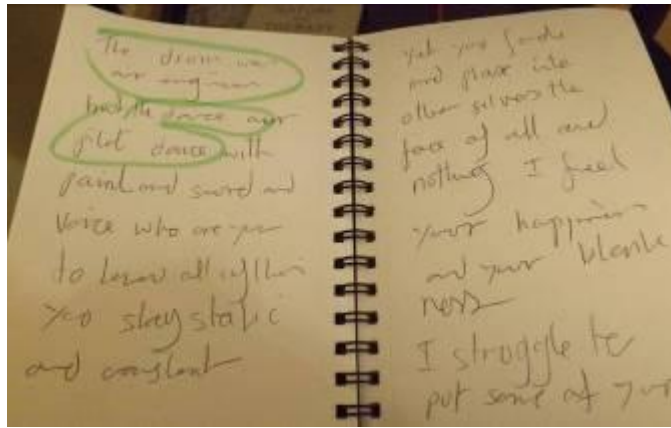 The drum was
our engine
the dance our
pilot dance with
paint and sword and
voice who are you
to know all of this
you stay static
and constant
yet you
and phase into
other selves the
face of all and
nothing I feel
your happiness
and your blank
ness
I struggle to
put some of your